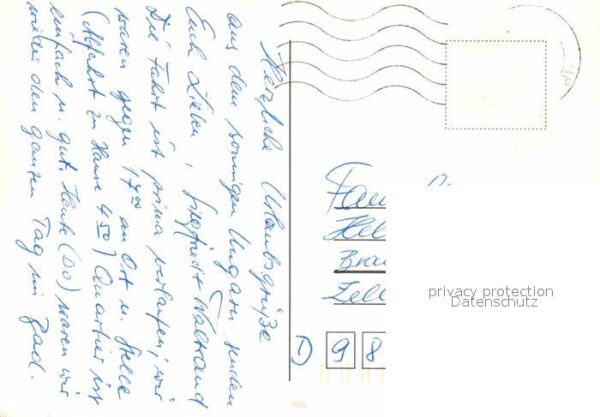 Herzliche Urlaubsgrüße
aus dem sonnigen Ungarn senden
Euch Lieben, Siegfried + Waltraud
Die Fahrt ist prima verlaufen, wir
waren gegen 17⁰⁰ an Ort u. Stelle
(Abfahrt zu Hause 4⁵⁰) Quartier ist
einfach u. gut. Heute (Do) waren wir
wieder den ganzen Tag im Bad.
Fam
Hel
Bra
Zell
D 98
privacy protection
Datenschutz